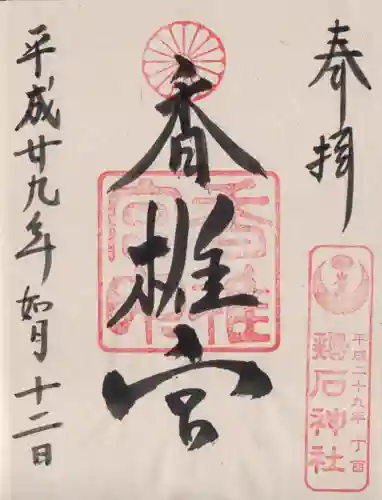 奉拝
平成二十九年 丁酉
鶏石神社
香椎宮
平成廿九年 如月 十二日